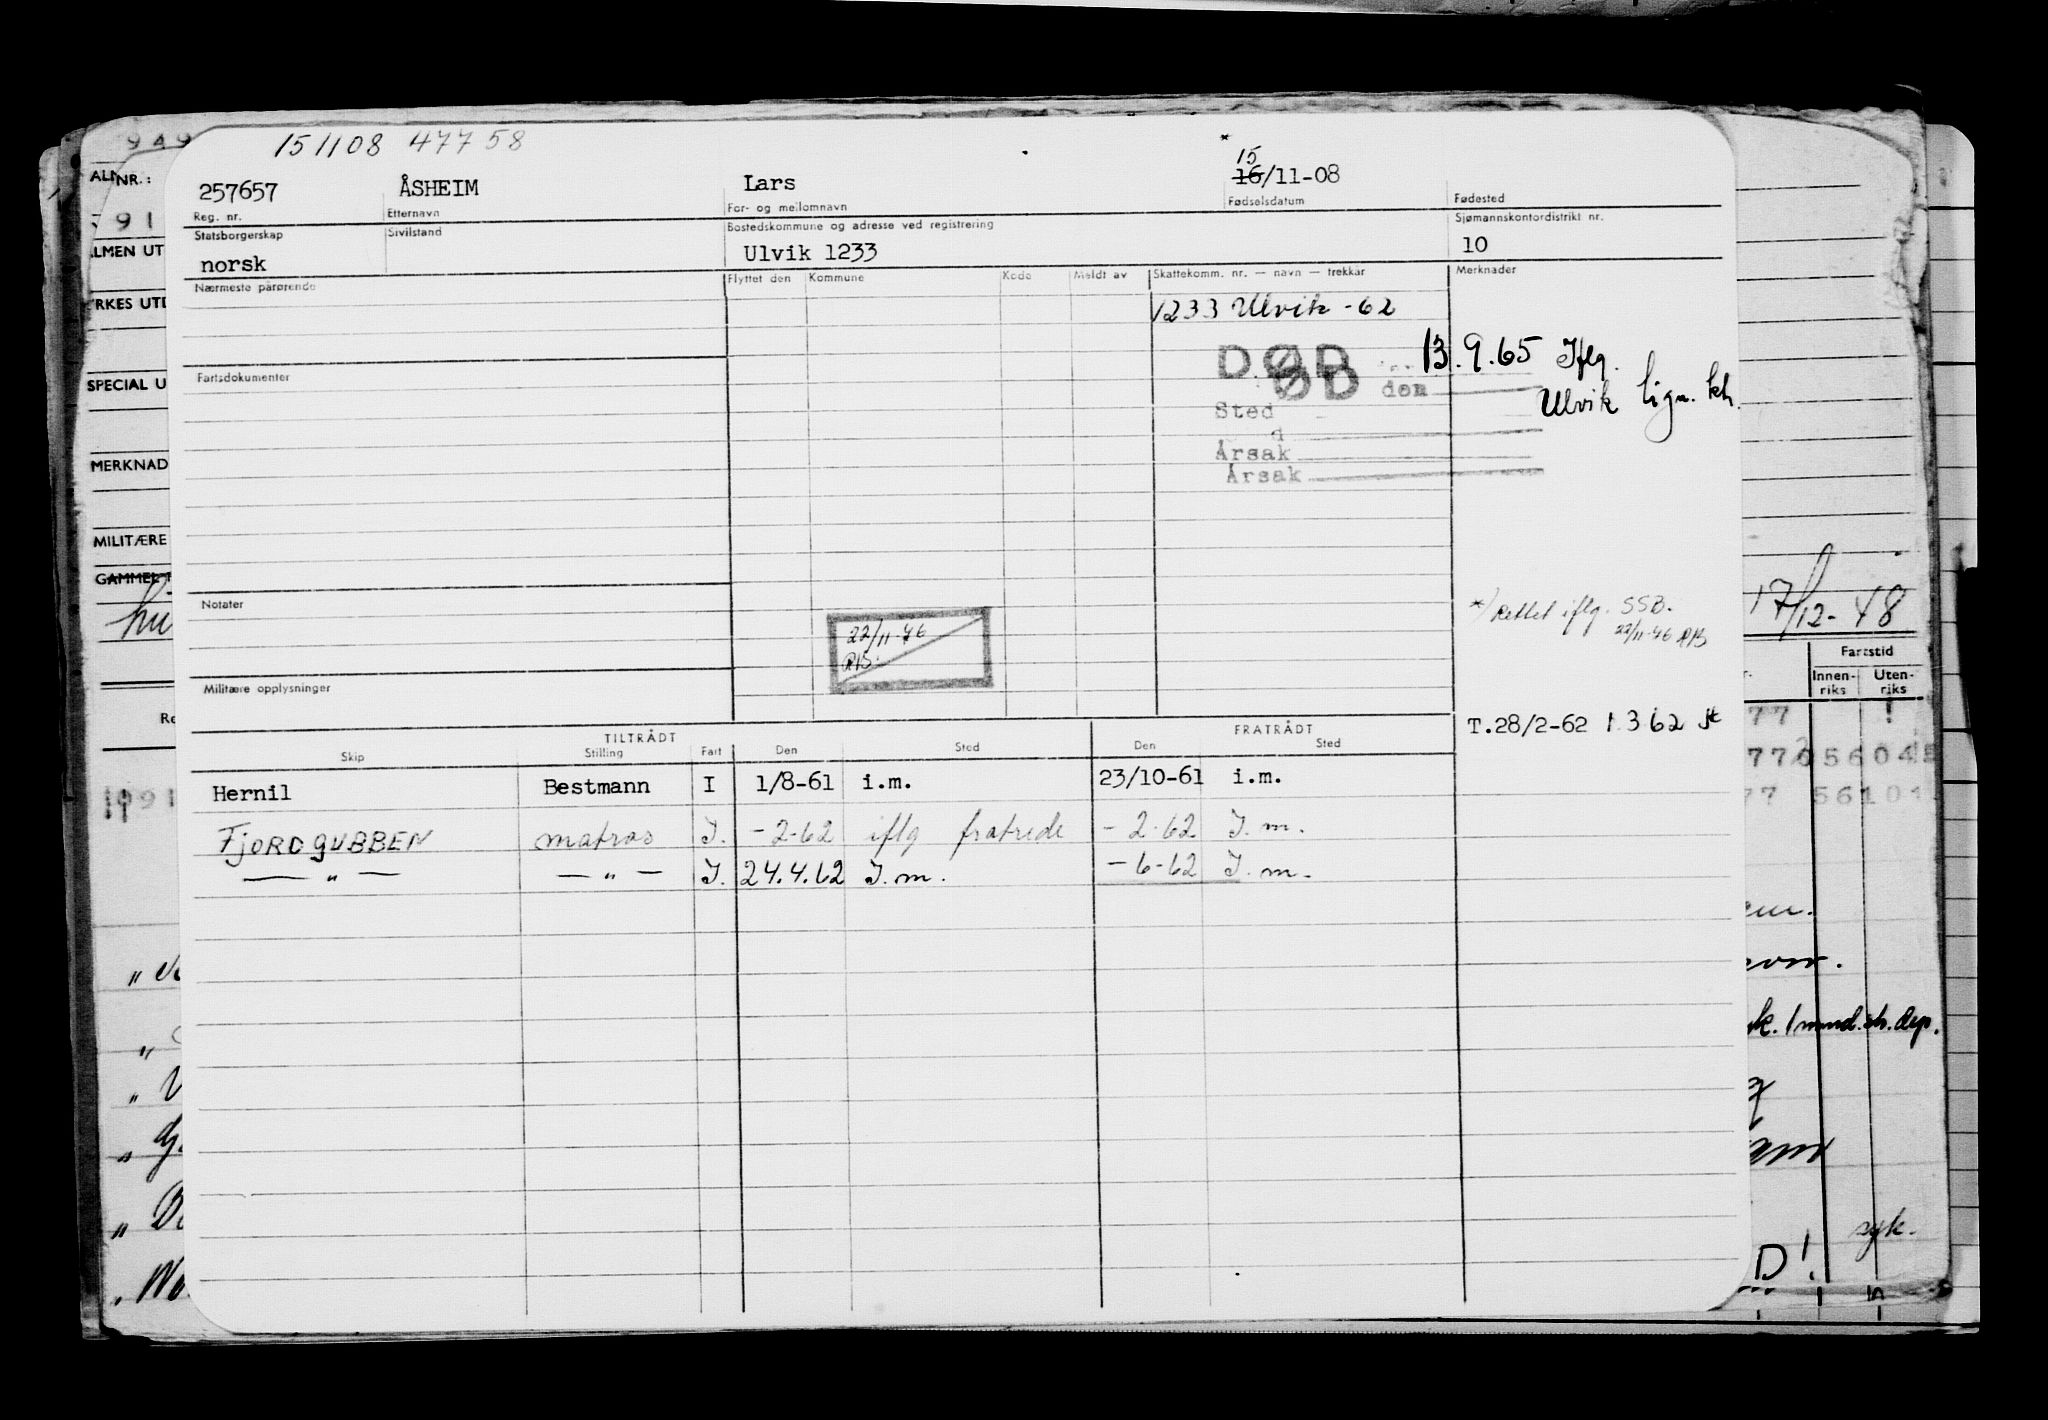 151108 47758
257657 ÅSHEIM Lars * 15 16/11-08
Reg. nr. Etternavn For- og mellomnavn Fødselsdatum Fødested
Statsborgerskap Sivilstand Bostedskommune og adresse ved registrering Sjømannskontordistrikt nr.
norsk Ulvik 1233 10
Nærmeste pårørende Flyttet den Kommune Kode Meldt av Skattekomm. nr. — navn — trekkår Merknader
1233 Ulvik -62
DØD 13.9.65 Iflg.
ØD den Ulvik lign. kt.
Fartsdokumenter
Sted
d
Årsak
Årsak
Notater
22/11-76
*) Rettet iflg. SSB.
22/11-76 RB
Militære opplysninger
T.28/2-62 1 3 62
TILTRÅDT FRATRÅDT
Skip Stilling Fart Den Sted Den Sted
Hernil Bestmann I 1/8-61 i.m. 23/10-61 i.m.
FjORDgUBBEN matros I. -2-62 iflg fratrede -2-62 I.m.
— " — — " — I. 24.4.62 I.m. -6-62 I.m.
949
NR.:
MERKNAD
MILITÆRE
SPECIAL U
17/12-48
Fartstid
Innen-riks Uten-riks
77
syk.
D!